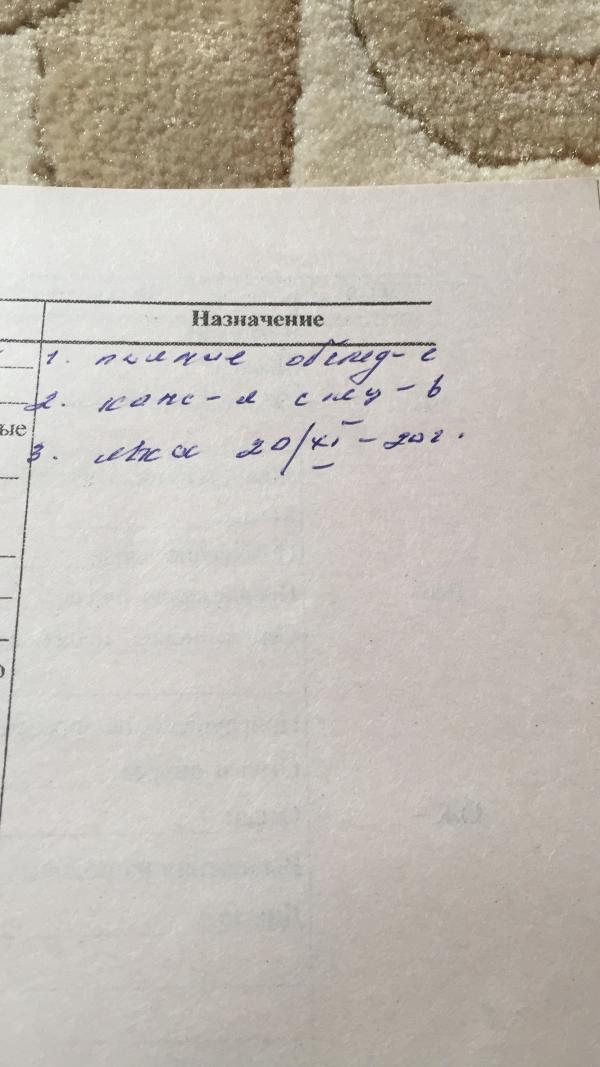 Назначение
1. полное обслед-е
2. конс-я спец-в
ые
3. явка 20/XI-20г.